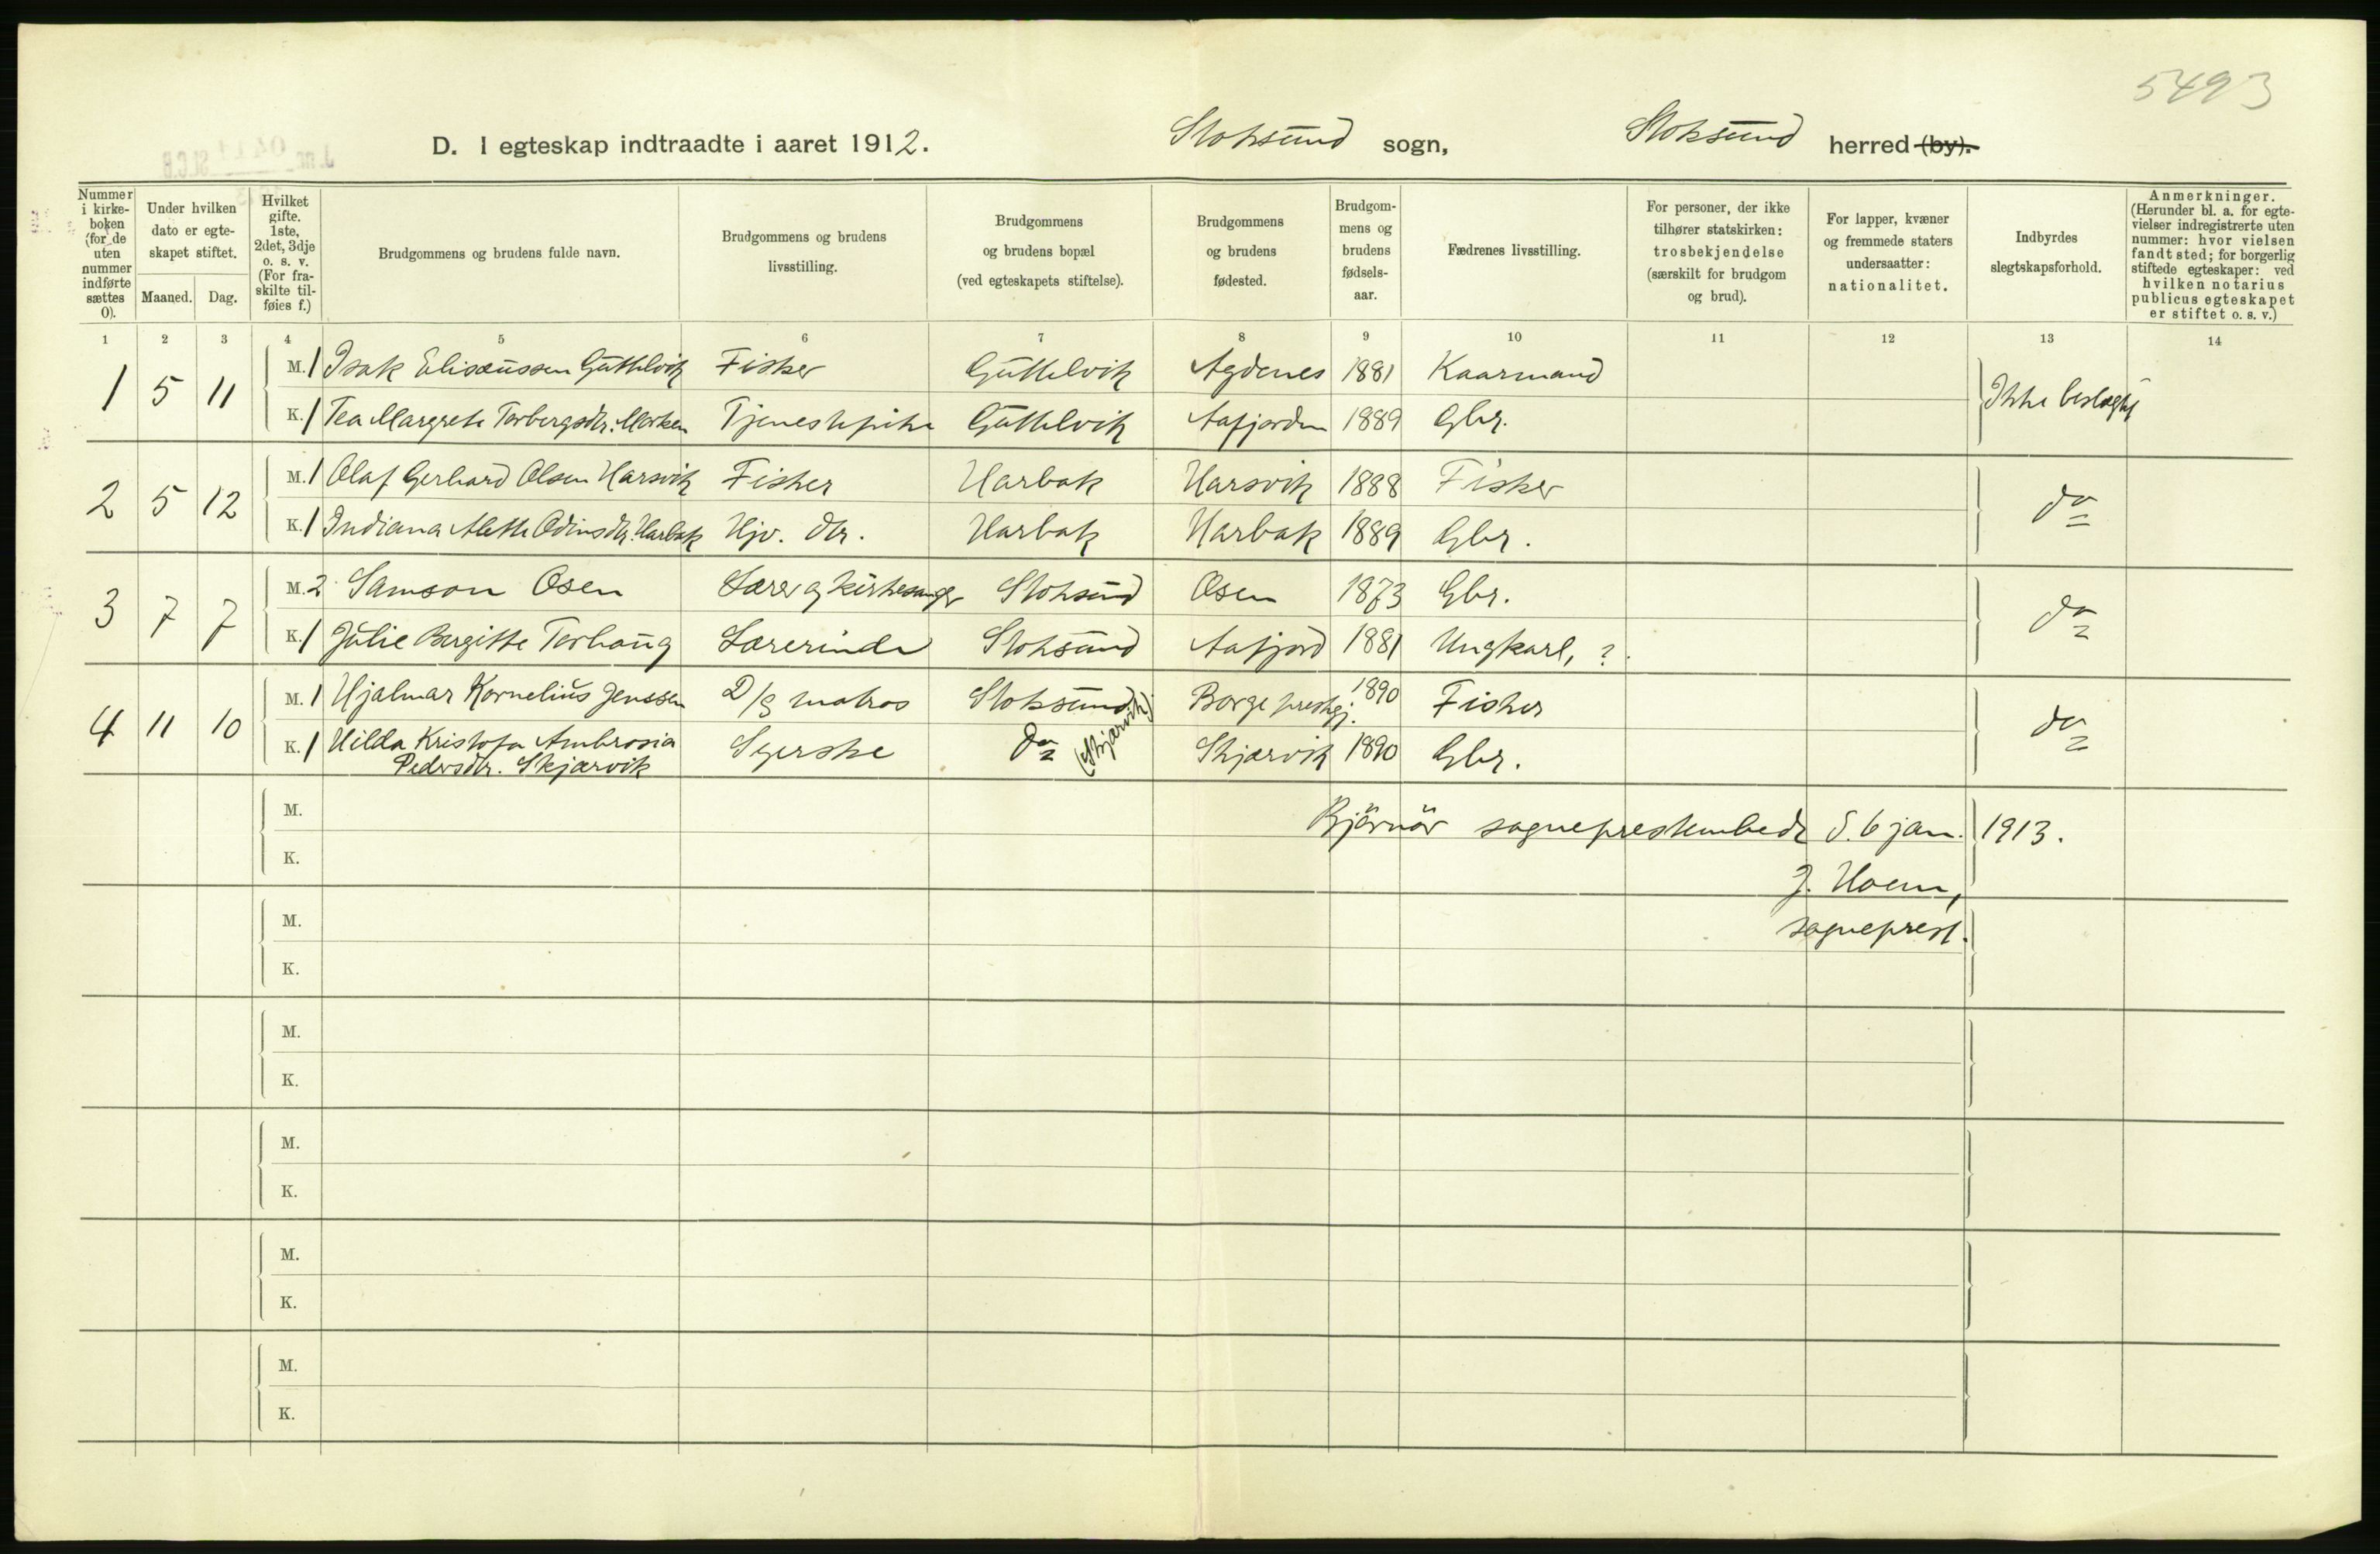 5493
D. I egteskap indtraadte i aaret 1912. Stoksund sogn, Stoksund herred (by).
Nummer i kirkeboken (for de uten nummer indførte sættes 0).
Under hvilken dato er egteskapet stiftet.
Maaned. Dag.
Hvilket gifte. 1ste, 2det, 3dje o. s. v. (For fraskilte tilføies f.)
Brudgommens og brudens fulde navn.
Brudgommens og brudens livsstilling.
Brudgommens og brudens bopæl (ved egteskapets stiftelse).
Brudgommens og brudens fødested.
Brudgommens og brudens fødselsaar.
Fædrenes livsstilling.
For personer, der ikke tilhører statskirken: trosbekjendelse (særskilt for brudgom og brud).
For lapper, kvæner og fremmede staters undersaatter: nationalitet.
Indbyrdes slegtskapsforhold.
Anmerkninger. (Herunder bl. a. for egtevielser indregistrerte uten nummer: hvor vielsen fandt sted; for borgerlig stiftede egteskaper: ved hvilken notarius publicus egteskapet er stiftet o. s. v.)
1 2 3 4 5 6 7 8 9 10 11 12 13 14
1 5 11 M. 1 Isak Elisæussen Guttelvik Fisker Guttelvik Agdenes 1881 Kaarmand Ikke beslægt
K. 1 Tea Margrete Torbergsdtr. Morken Tjenestepike Guttelvik Aafjorden 1889 Gbr.
2 5 12 M. 1 Olaf Gerhard Olsen Harsvik Fisker Harbak Harsvik 1888 Fisker do
K. 1 Indiana Alette Odinsdtr. Harbak Hjv. dtr. Harbak Harbak 1889 Gbr.
3 7 7 M. 2 Samson Osen Lærer og kirkesanger Stoksund Osen 1873 Gbr. do
K. 1 Julie Bergitte Terhaug Lærerinde Stoksund Aafjord 1881 Ungkarl, ?
4 11 10 M. 1 Hjalmar Kornelius Jenssen D/s matros Stoksund Borge prestgj. 1890 Fisker do
K. 1 Hilda Kristofa Ambrosia Syerske do (Skjærvik) Skjærvik 1890 Gbr.
Pedersdtr. Skjærvik
M. Bjørnør sogneprestembede d. 6 jan. 1913.
K.
J. Hoem,
M. sogneprest.
K.
M.
K.
M.
K.
M.
K.
M.
K.